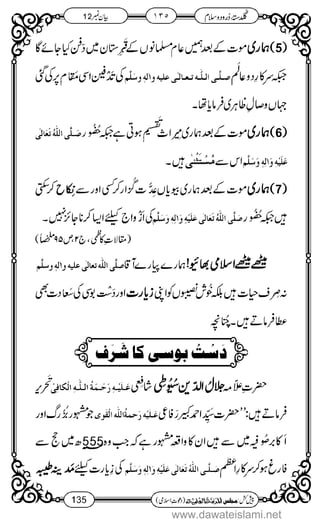 بیان نمبر 12 ۱۳۵ گلدستۂ درود و سلام
(5) ہماری موت کے بعد ہمیں عام مسلمانوں کے قبرستان میں دفن کیا جائے گا
جبکہ سرکارِ دو عالم صلی اللہ تعالی علیہ والہ وسلم کی تدفین اسی مقام پر کی گئی
جہاں وصالِ ظاہری فرمایا تھا۔
(6) ہماری موت کے بعد ہماری میراث تقسیم ہوتی ہے جبکہ حضور صَلَّی اللہُ تَعَالٰی
عَلَیْہِ وَاٰلِہٖ وَسَلَّم اس سے مُسْتَثْنٰی ہیں۔
(7) ہماری موت کے بعد ہماری بیویاں عدت گزار کر کسی اور سے نکاح کر سکتی
ہیں جبکہ حضور صَلَّی اللہُ تَعَالٰی عَلَیْہِ وَاٰلِہٖ وَسَلَّم کی ازواج کیلئے ایسا کرنا جائز نہیں۔
(مقالاتِ کاظمی، ج۲، ص۹۵ ملخصاً)
میٹھے میٹھے اسلامی بھائیو! ہمارے پیارے آقا صلی اللہ تعالی علیہ والہ وسلم
نہ صرف حیات ہیں بلکہ خوش نصیبوں کو اپنی زیارت اور دست بوسی کی سعادت بھی
عطا فرماتے ہیں۔ چنانچہ
دَسْت بوسی کا شَرَف
حضرتِ علامہ جلالُ الدّین سُیُوطی شافعی عَلَیْہِ رَحْمَۃُ اللہِ الْکَافِی تحریر
فرماتے ہیں: ’’حضرت سید احمد کبیر رفاعی عَلَیْہِ رَحْمَۃُاللہِ الْقَوِی جو مشہور بزرگ اور
اکابر صوفیہ میں سے ہیں ان کا واقعہ مشہور ہے کہ جب وہ 555ھ میں حج سے
فارغ ہو کر سرکارِ اعظم صَلَّی اللہُ تَعَالٰی عَلَیْہِ وَاٰلِہٖ وَسَلَّم کی زیارت کیلئے مدینہ طیبہ
135 پیش کش: مجلس المدینۃ العلمیۃ (دعوتِ اسلامی)
www.dawateislami.net